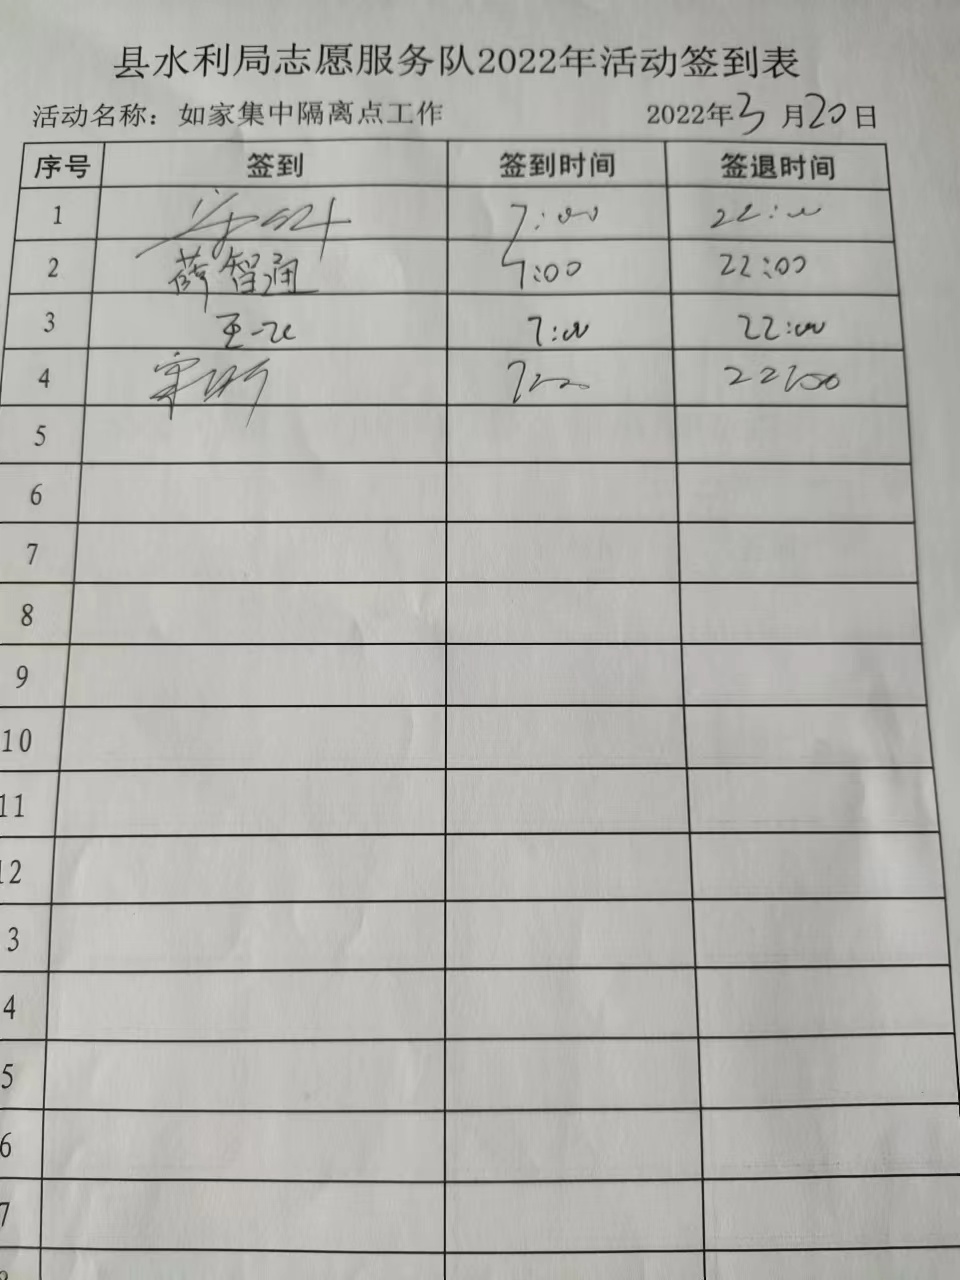 县水利局志愿服务队2022年活动签到表
活动名称：如家集中隔离点工作 2022年3月20日
序号 签到 签到时间 签退时间
1 7:00 22:00
2 薛智通 7:00 22:00
3 7:00 22:00
4 7:00 22:00
5
6
7
8
9
10
11
12
3
4
5
6
7